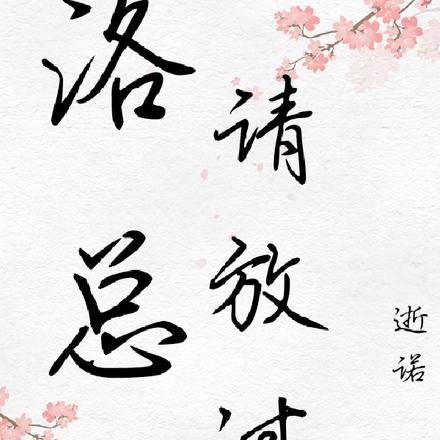 洛总
请放
逝诺